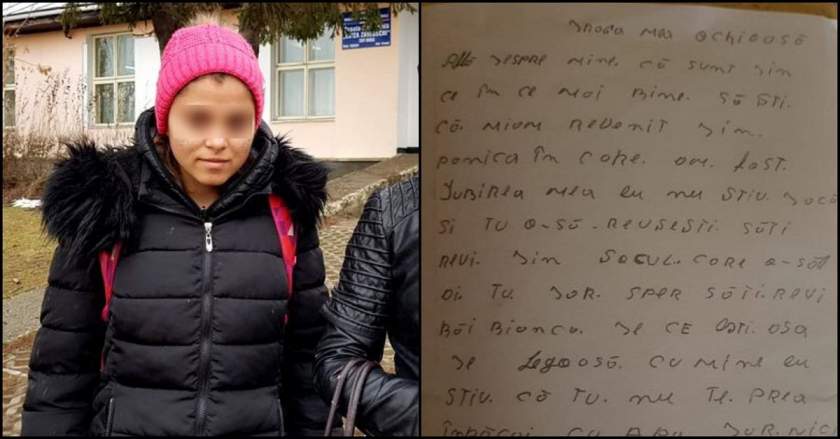 draga mea ochioasă
Afle despre mine. că sunt din
ce în ce mai bine. să sti.
că miam revenit din.
panica în care. am. fost.
Iubirea mea eu nu stiu. dacă
si tu o-să-reusesti. săti
revi. din socul. care o-săl
ai. tu. dar. sper săti.revi
băi Bianca. de ce esti. asa
de legoasă. cu mine eu
stiu. că tu. nu te. prea
împăcai cu